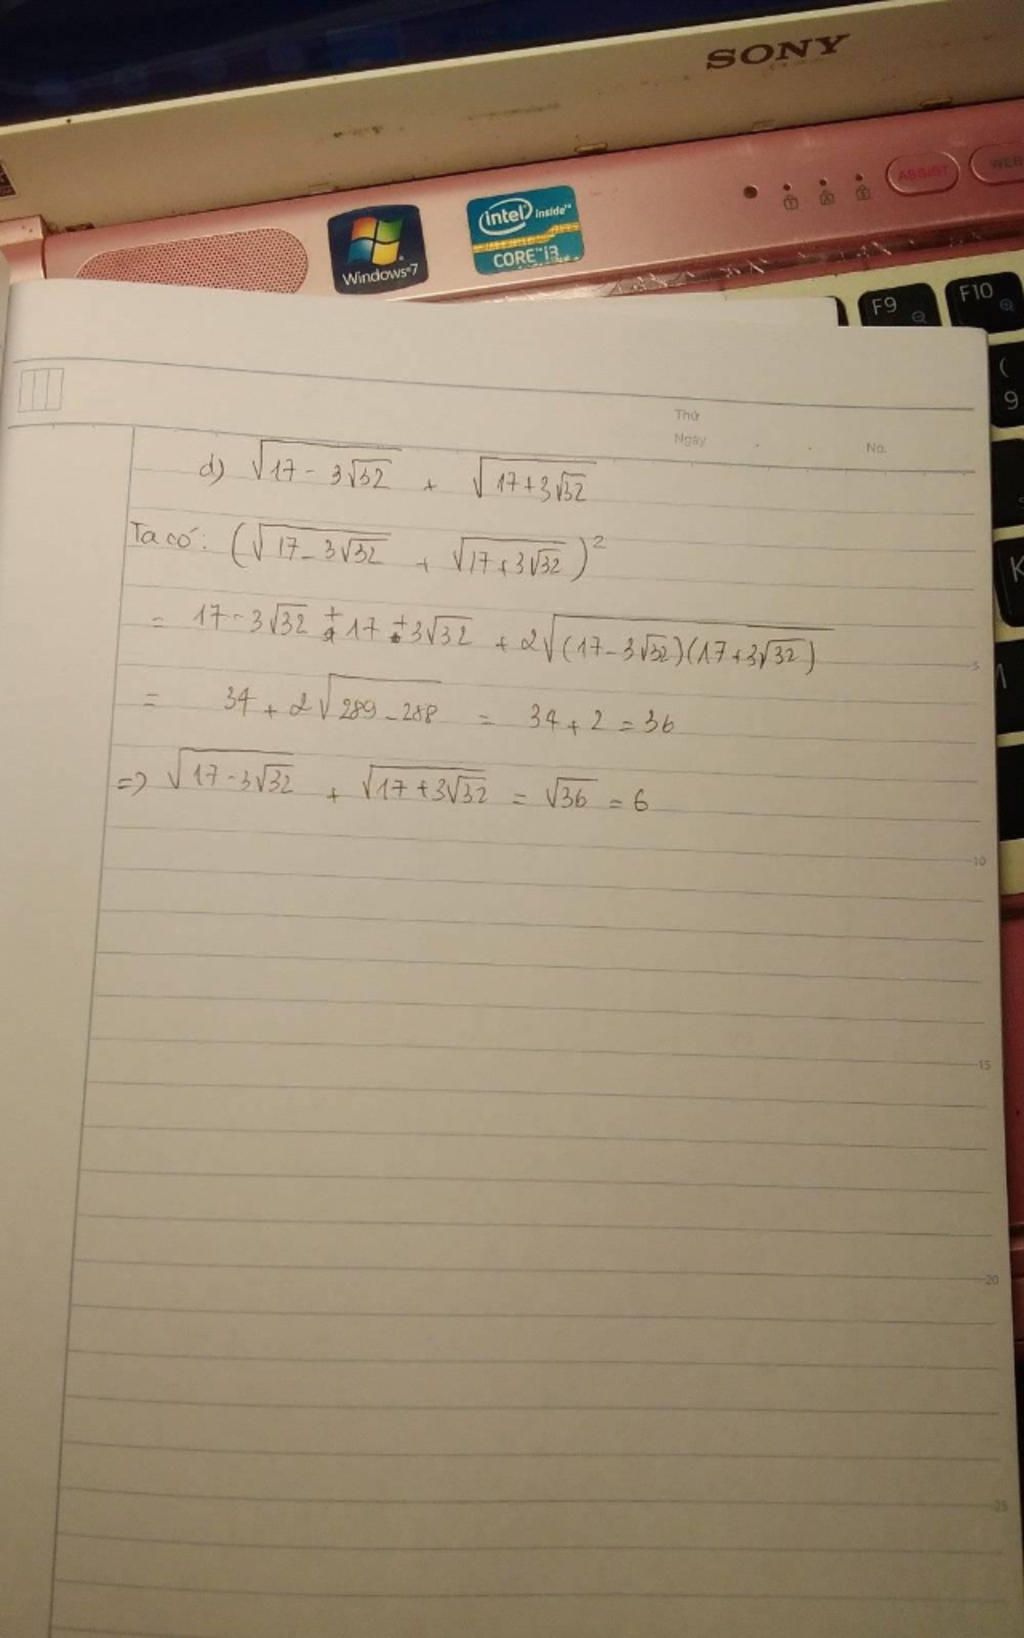 SONY
ASSIST
WEB
intel inside™
CORE™ i3
Windows 7
F9
F10
(
9
K
Thứ
Ngày
No.
d) √(17 - 3√32) + √(17 + 3√32)
Ta có: (√(17 - 3√32) + √(17 + 3√32))²
= 17 - 3√32 + 17 + 3√32 + 2√((17 - 3√32)(17 + 3√32))
5
= 34 + 2√(289 - 288) = 34 + 2 = 36
=> √(17 - 3√32) + √(17 + 3√32) = √36 = 6
10
15
20
25